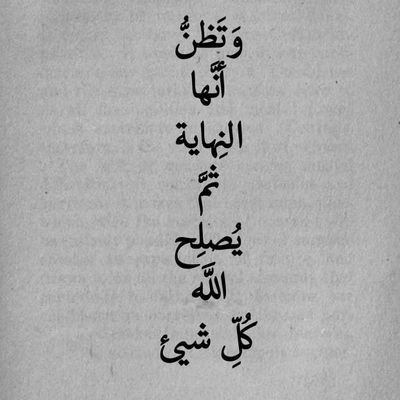 وَتَظنُّ
أنَّها
النِهاية
ثمَّ
يُصلِح
اللَّه
كُلِّ شيئ